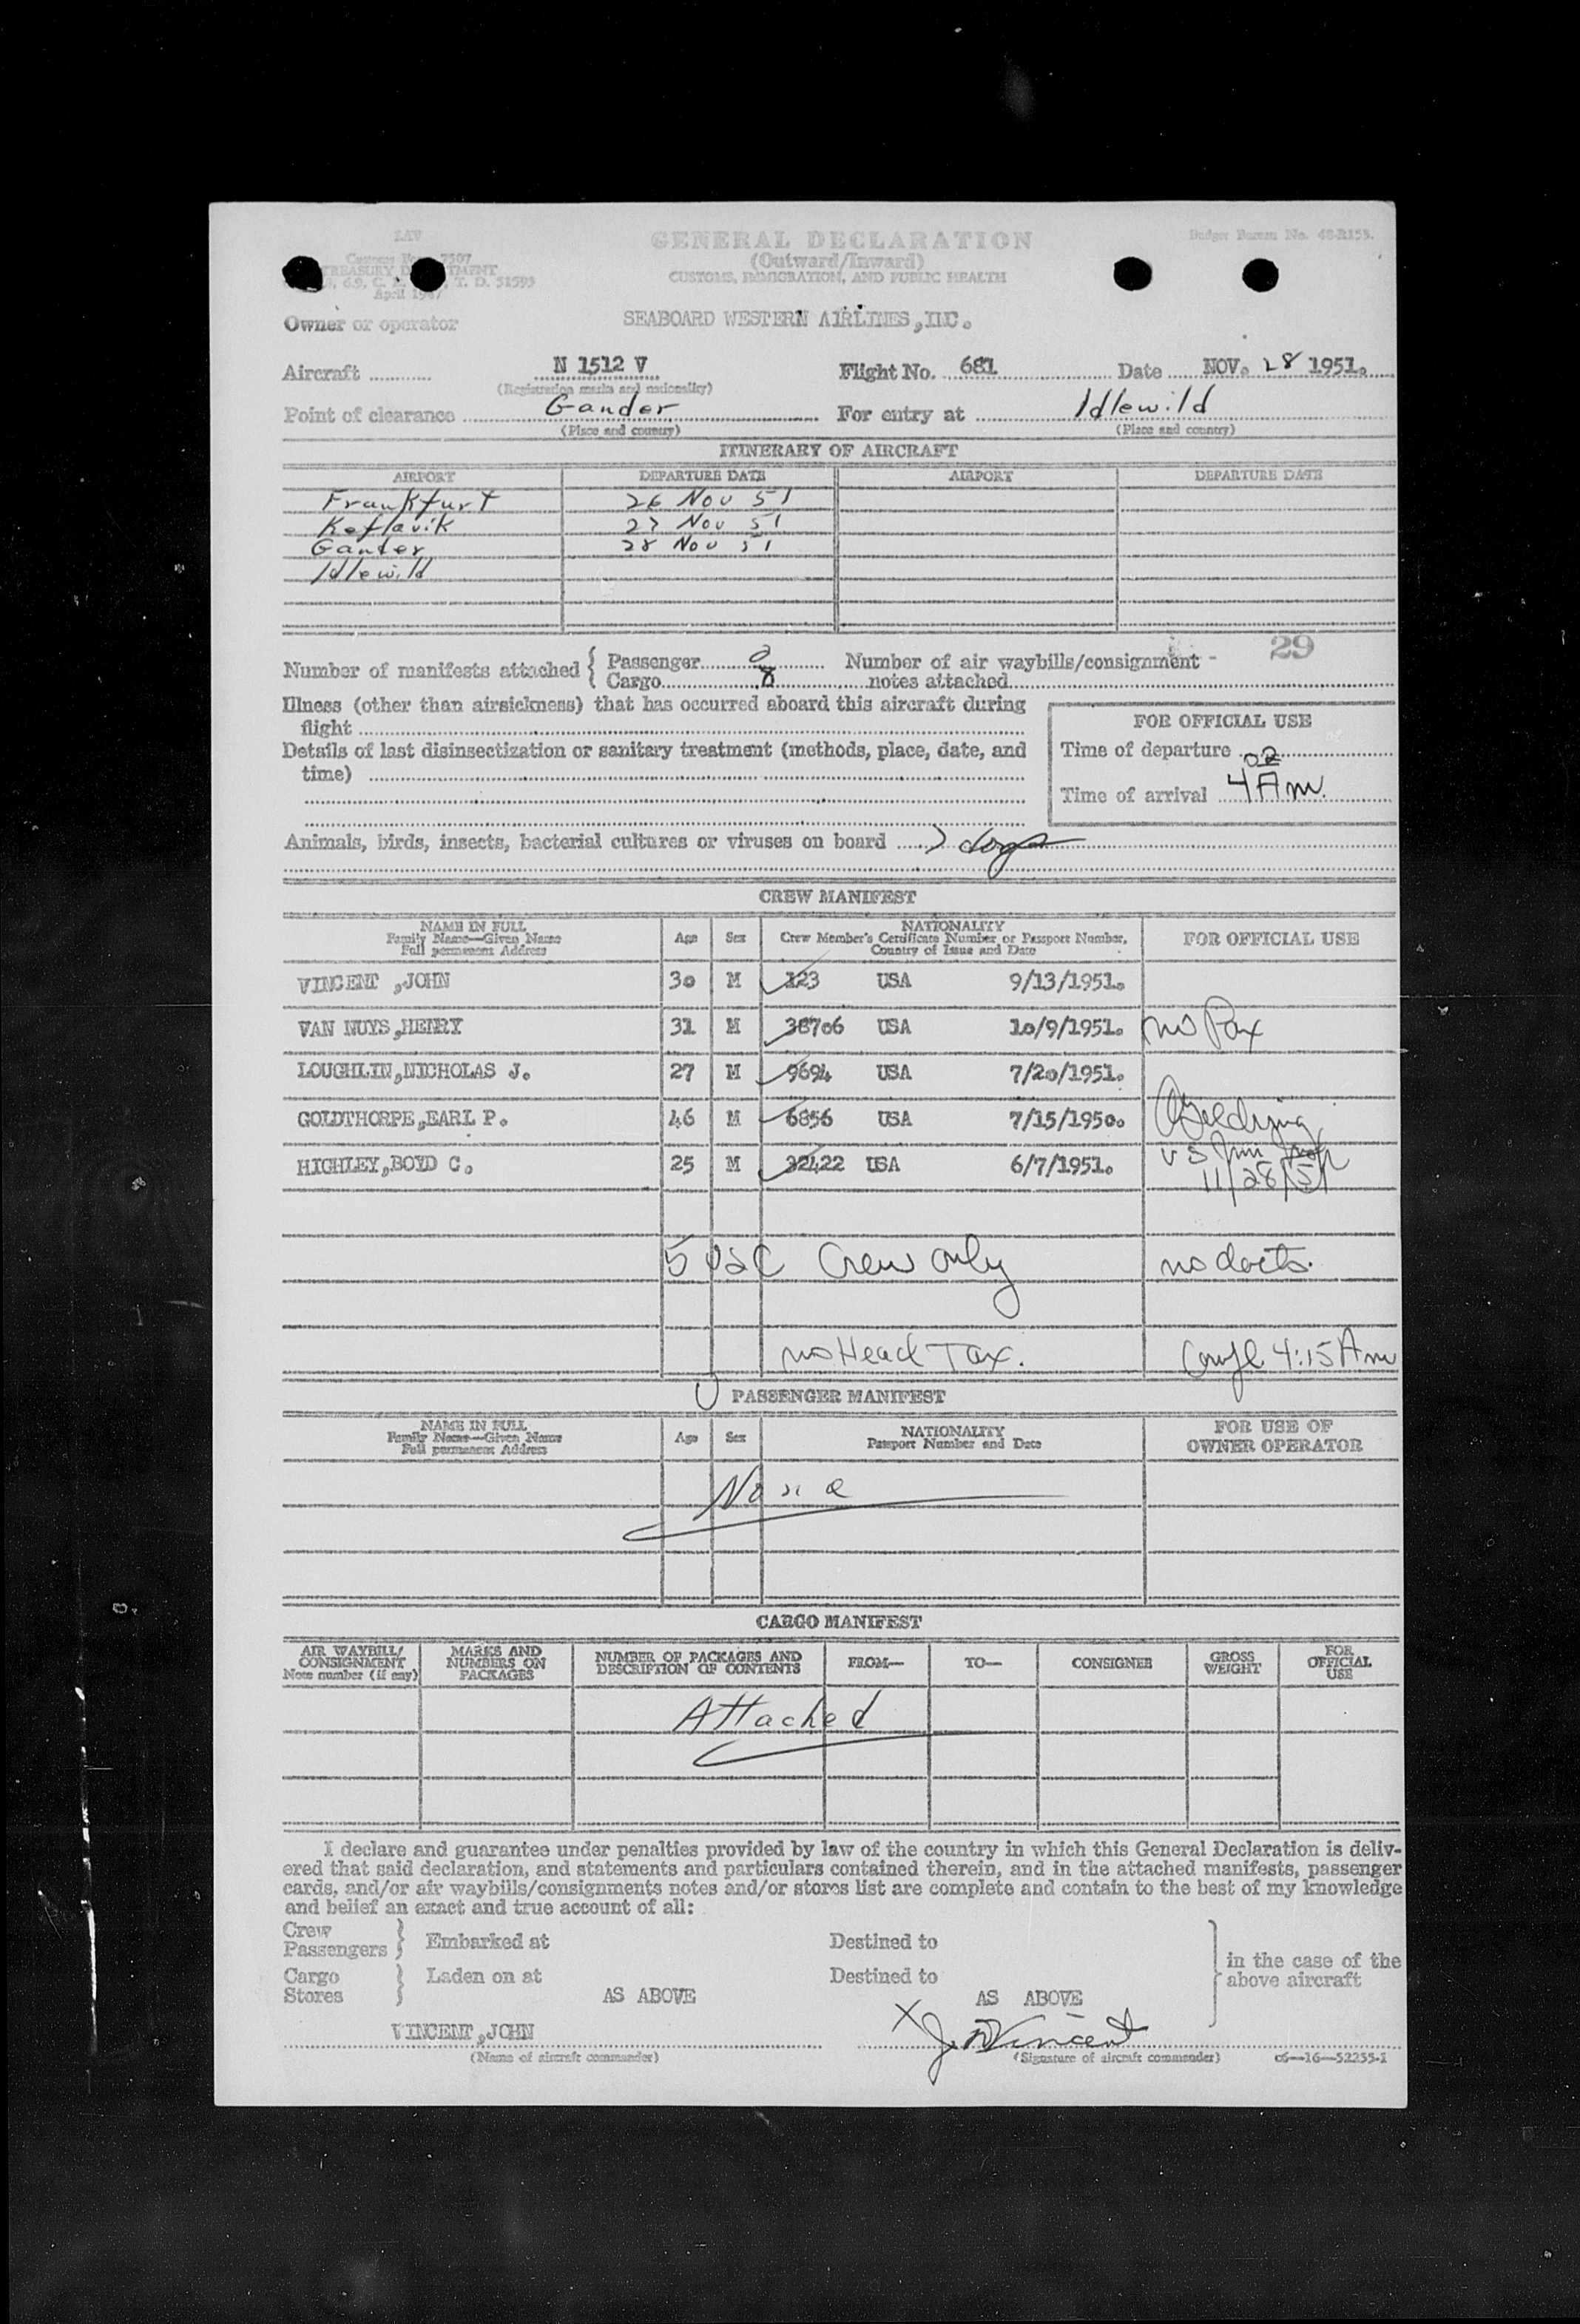 LAV
Customs Form 7507
TREASURY DEPARTMENT
6.9, C. T. D. 51595
April 1947
GENERAL DECLARATION
(Outward/Inward)
CUSTOMS, IMMIGRATION, AND PUBLIC HEALTH
Budget Bureau No. 48-R153.
Owner or operator SEABOARD WESTERN AIRLINES,INC.
Aircraft N 1512 V Flight No. 681 Date NOV. 28 1951.
(Registration marks and nationality)
Point of clearance Gander For entry at Idlewild
(Place and country) (Place and country)
ITINERARY OF AIRCRAFT
AIRPORT DEPARTURE DATE AIRPORT DEPARTURE DATE
Frankfurt 26 Nov 51
Keflavik 27 Nov 51
Gander 28 Nov 51
Idlewild
29
Number of manifests attached { Passenger 0 Number of air waybills/consignment
Cargo 8 notes attached
Illness (other than airsickness) that has occurred aboard this aircraft during
flight
Details of last disinsectization or sanitary treatment (methods, place, date, and
time)
FOR OFFICIAL USE
Time of departure
Time of arrival 4 02 Am.
Animals, birds, insects, bacterial cultures or viruses on board dogs
CREW MANIFEST
NAME IN FULL
Family Name—Given Name
Full permanent Address
Age Sex
NATIONALITY
Crew Member's Certificate Number or Passport Number,
Country of Issue and Date
FOR OFFICIAL USE
VINCENT ,JOHN 30 M 123 USA 9/13/1951.
VAN NUYS,HENRY 31 M 38706 USA 10/9/1951. no Pax
LOUGHLIN,NICHOLAS J. 27 M 9694 USA 7/20/1951.
GOLDTHORPE,EARL P. 46 M 6856 USA 7/15/1950.
HIGHLEY,BOYD C. 25 M 32422 USA 6/7/1951. US Imm Insp
11/28/51
5 USC Crew only no docts.
no Head Tax. Compl 4:15 Am
PASSENGER MANIFEST
NAME IN FULL
Family Name—Given Name
Full permanent Address
Age Sex
NATIONALITY
Passport Number and Date
FOR USE OF
OWNER OPERATOR
None
CARGO MANIFEST
AIR WAYBILL/
CONSIGNMENT
Note number (if any)
MARKS AND
NUMBERS ON
PACKAGES
NUMBER OF PACKAGES AND
DESCRIPTION OF CONTENTS
FROM— TO— CONSIGNEE
GROSS
WEIGHT
FOR
OFFICIAL
USE
Attached
I declare and guarantee under penalties provided by law of the country in which this General Declaration is deliv-
ered that said declaration, and statements and particulars contained therein, and in the attached manifests, passenger
cards, and/or air waybills/consignments notes and/or stores list are complete and contain to the best of my knowledge
and belief an exact and true account of all:
Crew
Passengers } Embarked at Destined to
Cargo
Stores } Laden on at Destined to
in the case of the
above aircraft
AS ABOVE AS ABOVE
VINCENT,JOHN X J. Vincent
(Name of aircraft commander) (Signature of aircraft commander) c6—16—52255-1